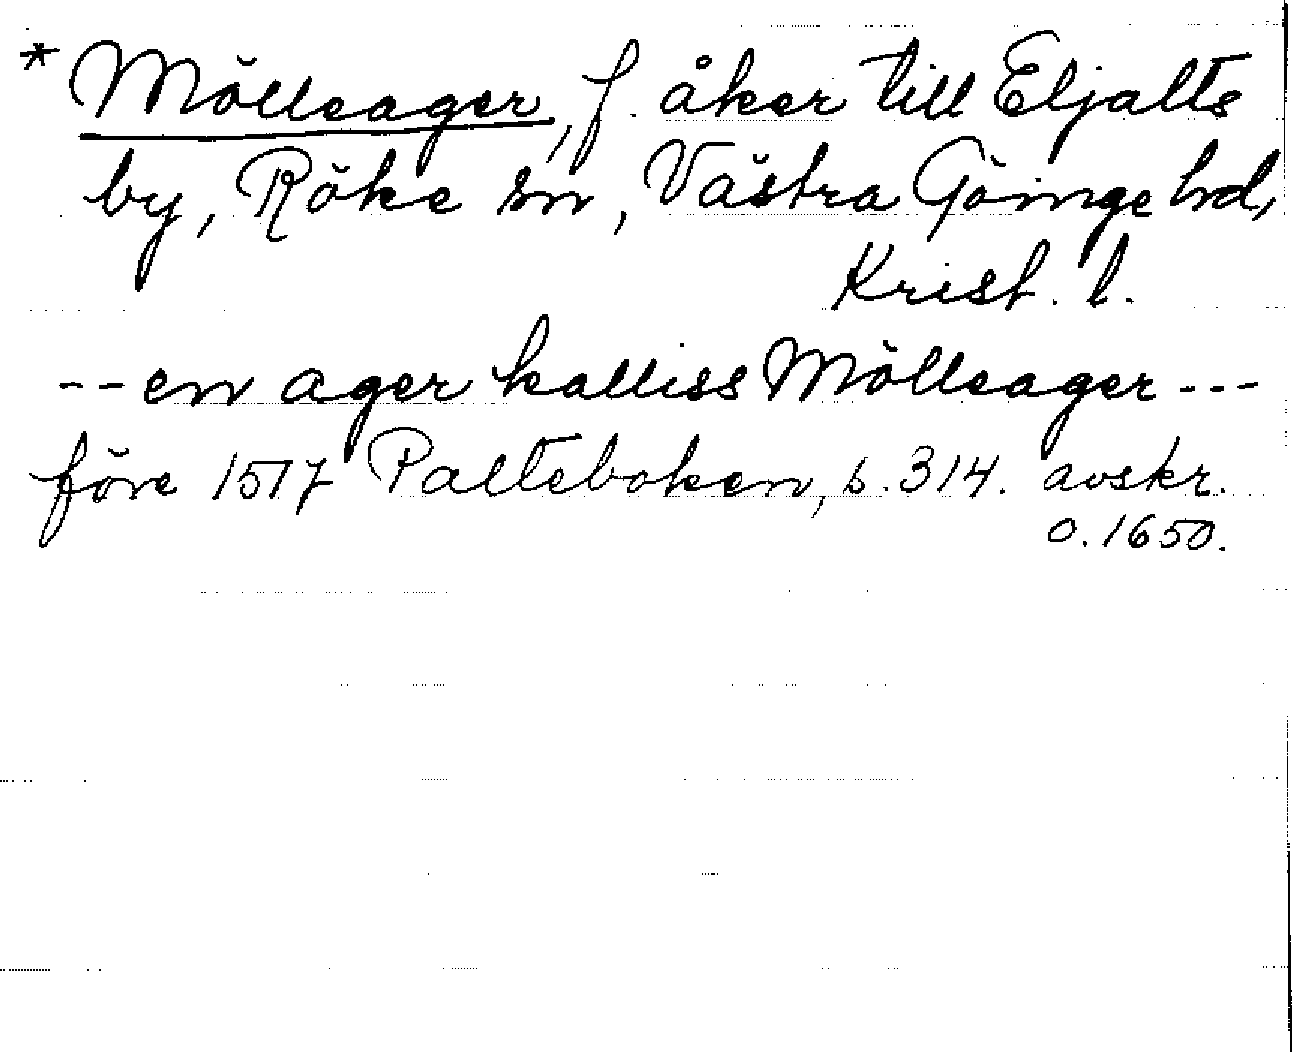 * Mölleager, f. åker till Eljalts
by, Röke sn, Västra Göinge hd,
Krist. l.
-- en ager kalliss Mölleager ---
före 1517 Palteboken, s. 314. avskr.
o. 1650.